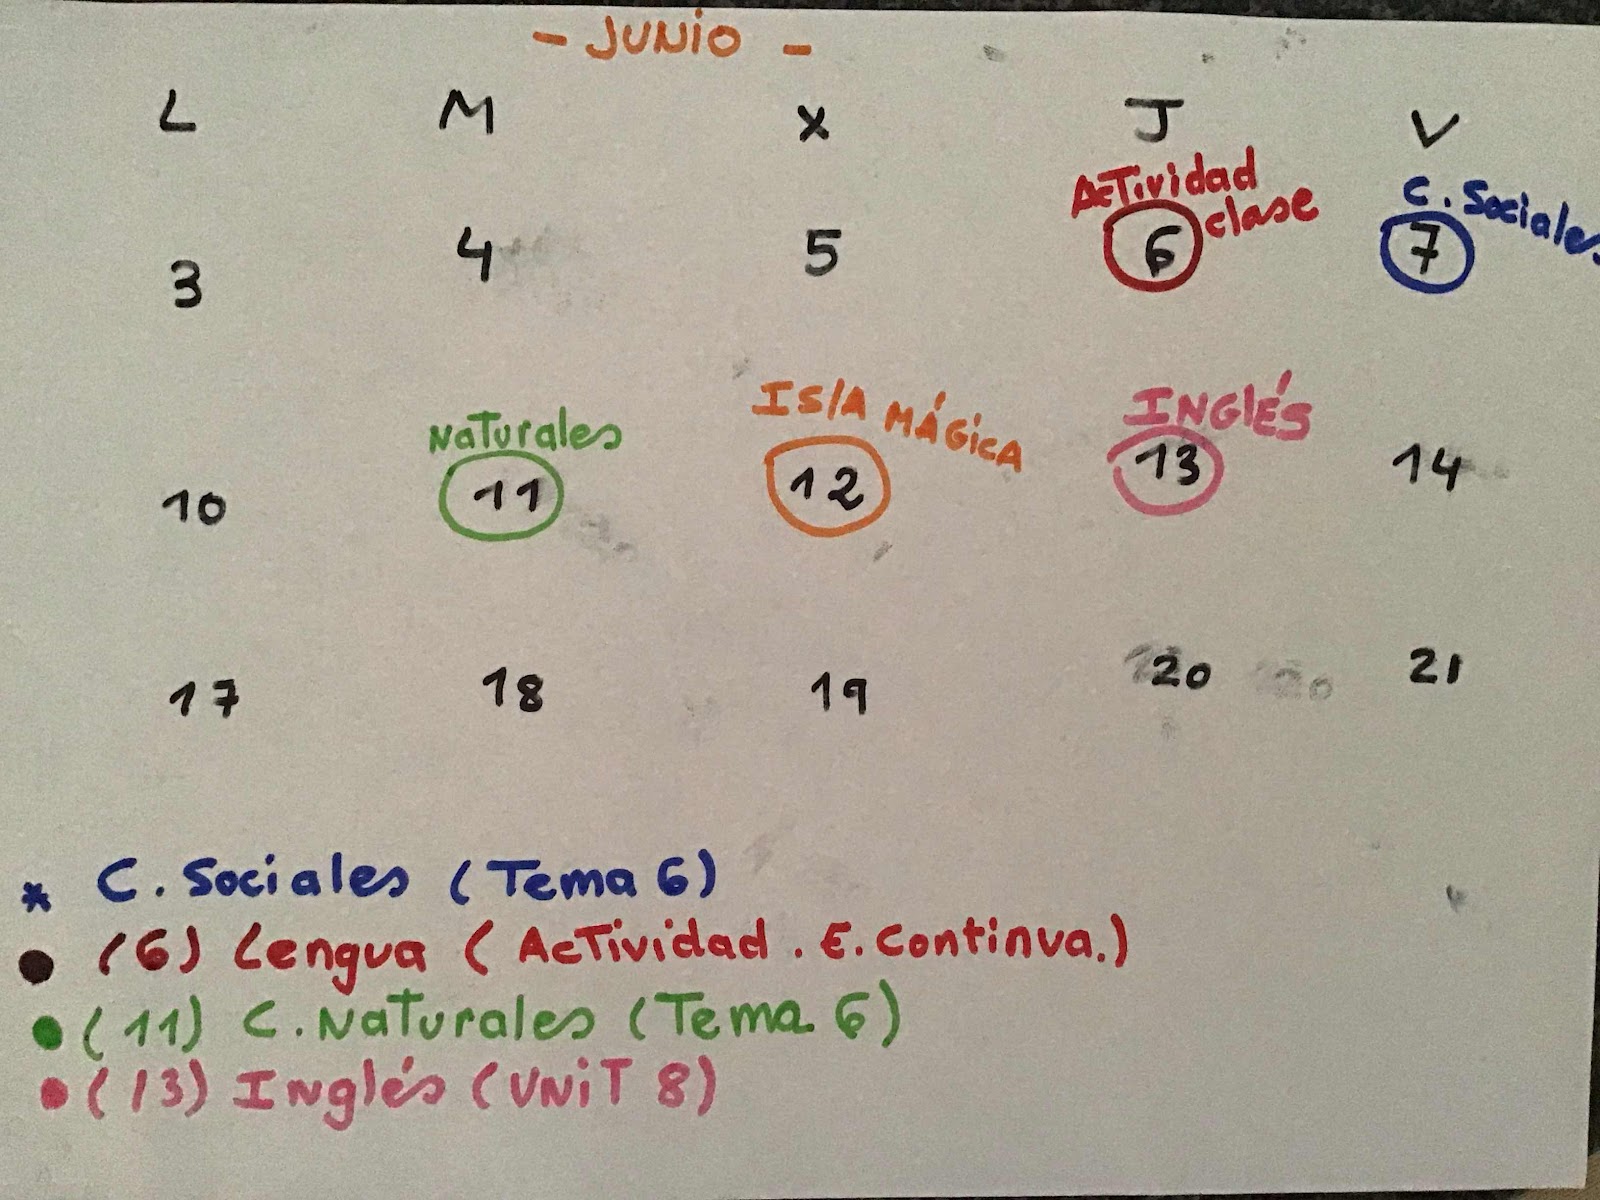 - JUNIO -
L M X J V
Actividad clase C. Sociales
3 4 5 6 7
Naturales ISlA MÁGICA INGLÉS
10 11 12 13 14
17 18 19 20 21
* C. Sociales (Tema 6)
• (6) Lengua (Actividad. E. Continua.)
• (11) C. Naturales (Tema 6)
• (13) Inglés (UNIT 8)